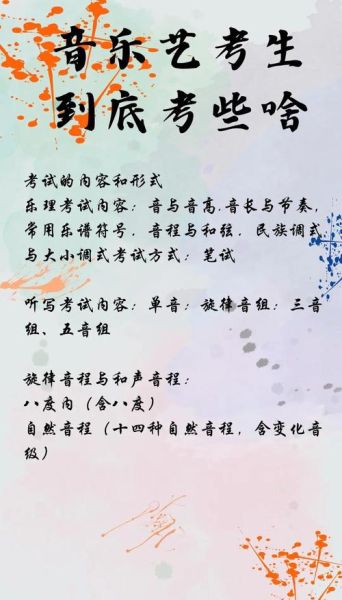 音乐艺考生
到底考些啥
考试的内容和形式
乐理考试内容：音与音高.音长与节奏,
常用乐谱符号、音程与和弦、民族调式
与大小调式考试方式：笔试
听写考试内容：单音；旋律音组：三音
组、五音组
旋律音程与和声音程：
八度内（含八度）
自然音程（十四种自然音程，含变化音
级）